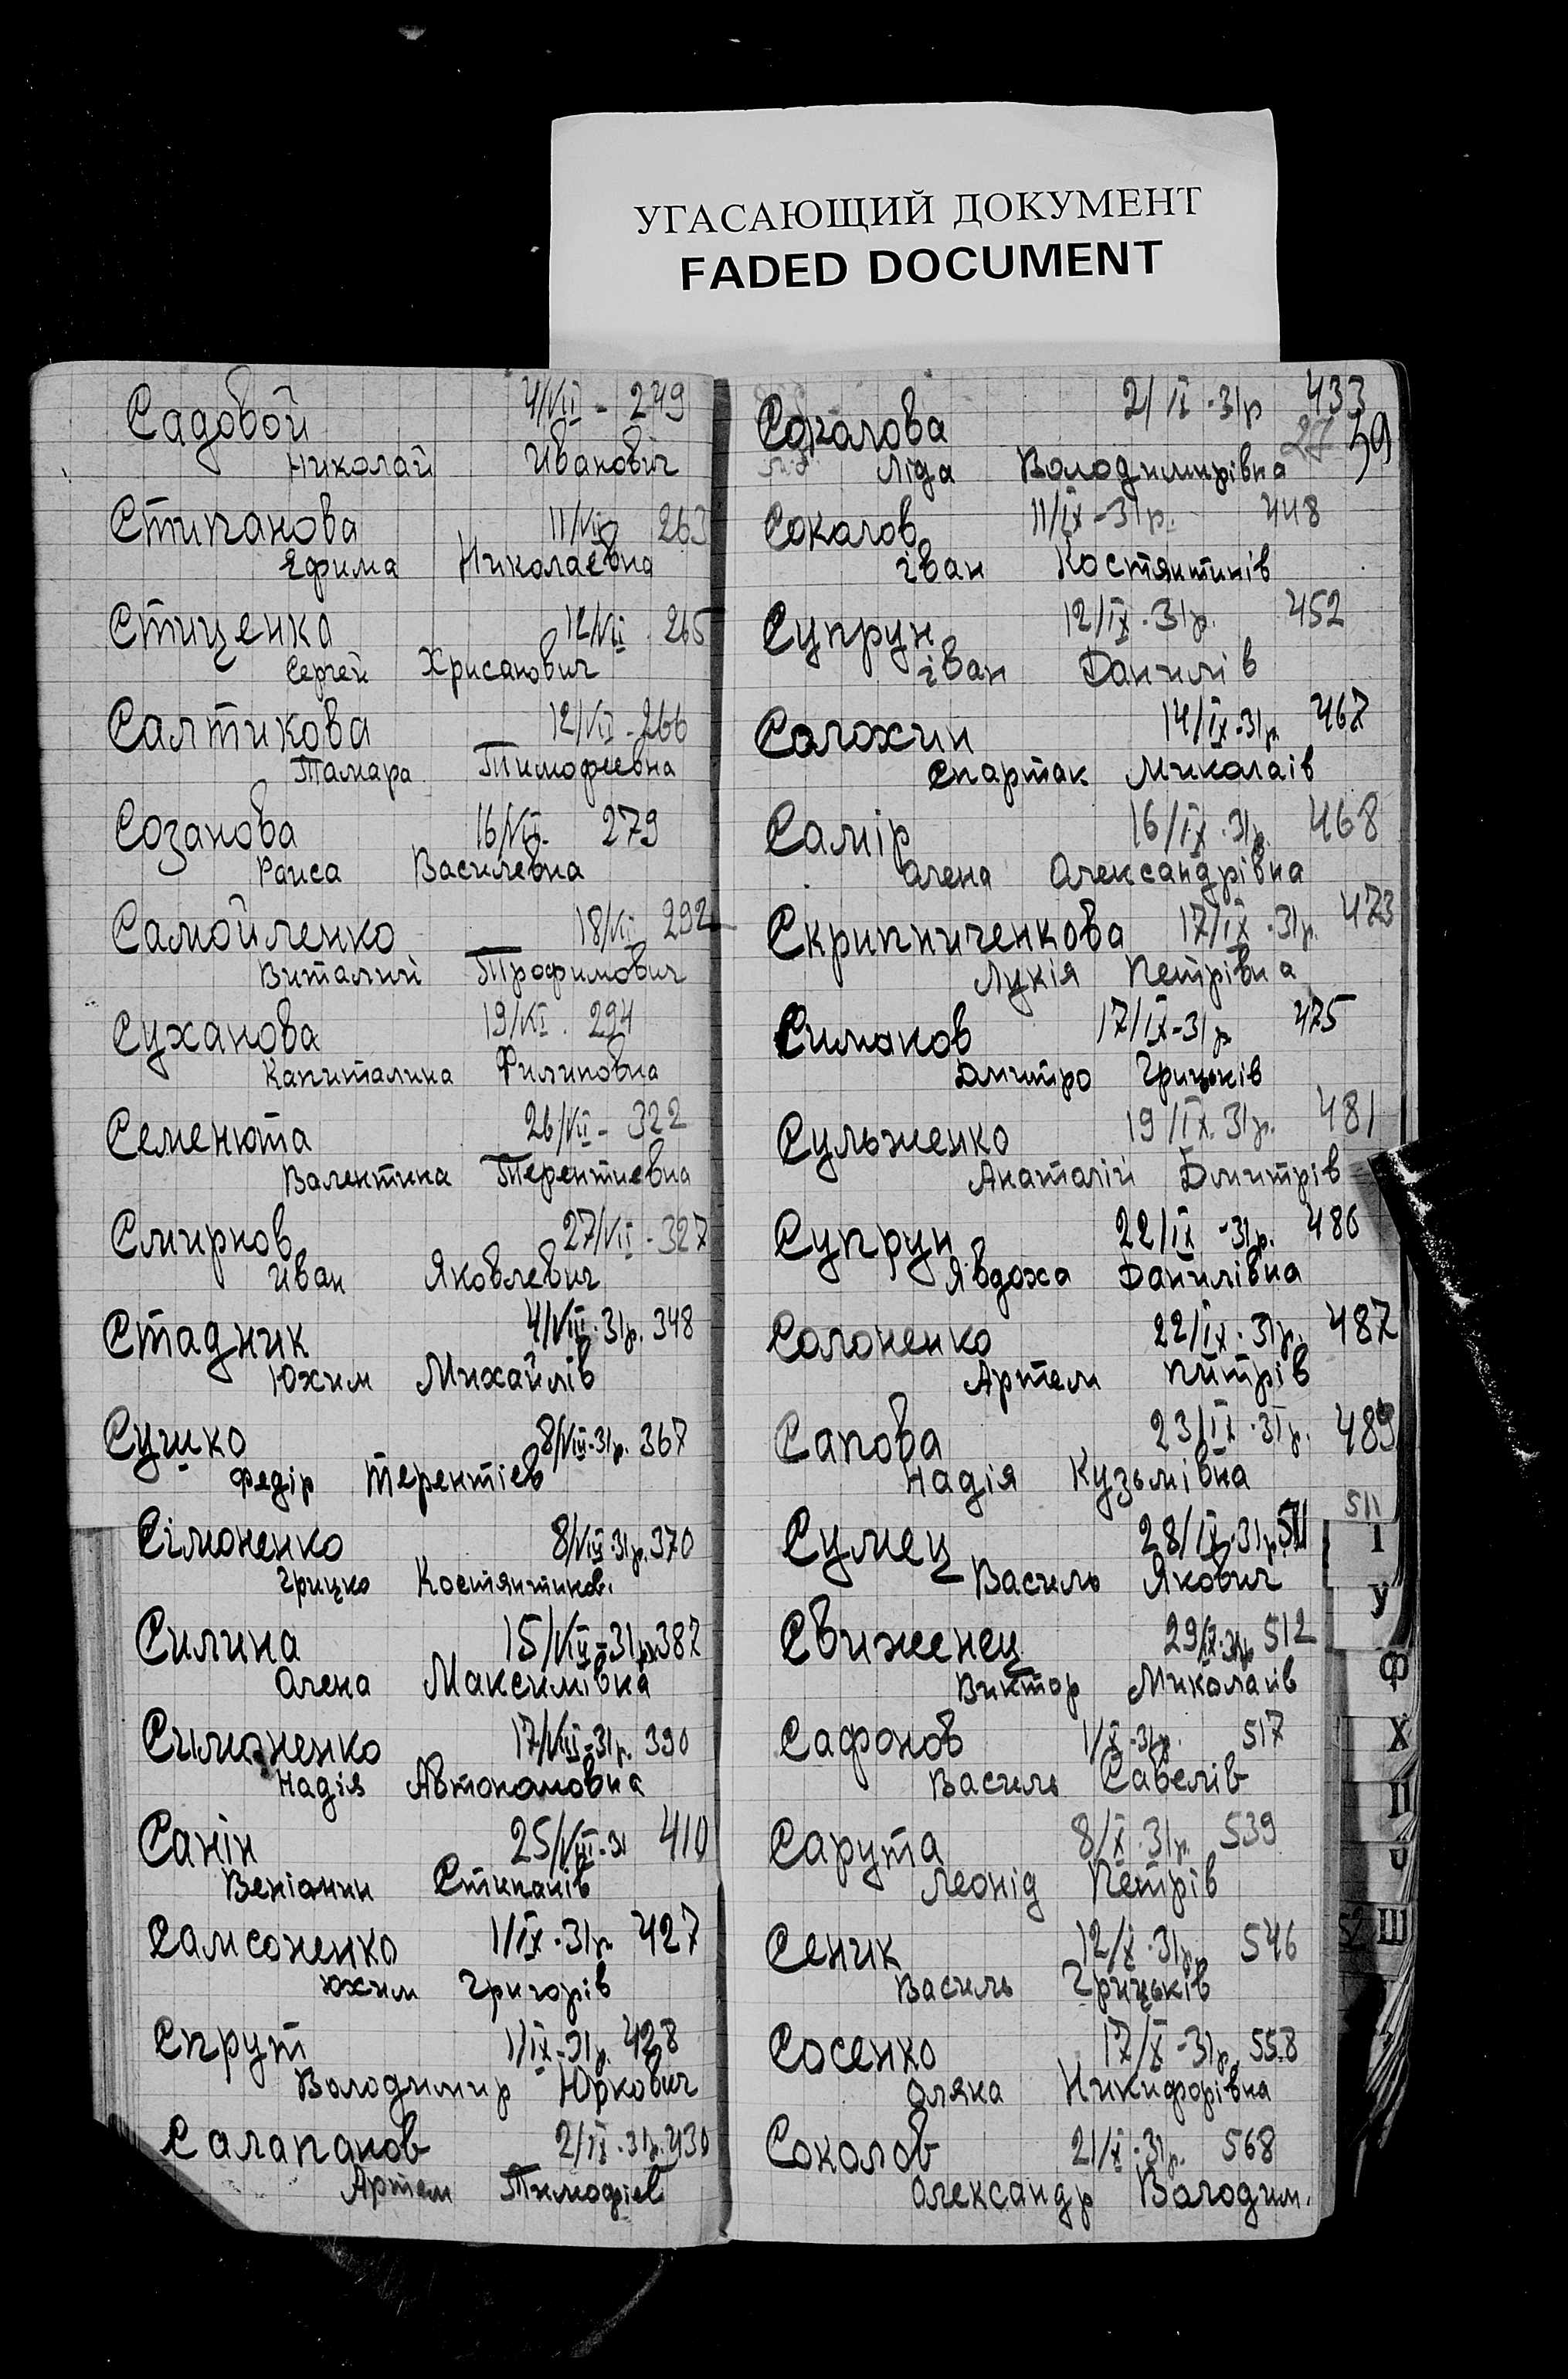 УГАСАЮЩИЙ ДОКУМЕНТ
FADED DOCUMENT
Садовой 4/VII - 249
Николай Иванович
Стипанова 11/VII 263
Ефима Николаевна
Стиценко 12/VII 265
Сергей Хрисанович
Салтикова 12/VII - 266
Тамара Тимофеевна
Созанова 16/VII. 279
Раиса Василевна
Самойленко 18/VII 292
Виталий Трофимович
Суханова 19/VII. 294
Капиталина Филиповна
Семенюта 26/VII - 322
Валентина Терентиевна
Смирнов 27/VII - 327
Иван Яковлевич
Стадник 4/VIII·31р. 348
Юхим Михайлів
Сушко 8/VIII·31р. 367
Федір Терентіев
Сімоненко 8/VIII·31р. 370
Грицко Костянтинов.
Силина 15/VIII-31р. 387
Олена Максимівна
Симоненко 17/VIII-31р. 390
Надія Автономовна
Санін 25/VIII-31 410
Веніамин Стипанів
Самсоненко 1/IX·31р. 427
Юхим Григорів
Спрут 1/IX-31р. 428
Володимир Юркович
Салапанов 2/IX·31р. 430
Артем Тимофіев
Сокалова 2/IX·31р 433
27 39
Ліда Володимирівна
Сокалов 11/IX-31р. 448
іван Костянтинів
Супрун 12/IX·31р. 452
іван Данилів
Солохин 14/IX·31р. 467
Спартак Миколаів
Самір 16/IX·31р. 468
Олена Олександрівна
Скрипниченкова 17/IX·31р. 473
Лукія Петрівна
Симаков 17/IX-31р 475
Дмитро Грицьків
Сульженко 19/IX.31р. 481
Анаталій Дмитрів
Супрун 22/IX-31р. 486
Явдоха Данилівна
Солоненко 22/IX·31р. 487
Артем Питрів
Сапова 23/IX·31р. 489
Надія Кузьмівна
511
Сумец 28/IX·31р. 511
Василь Якович
Свиженец 29/IX·31р 512
Виктор Миколаив
Сафонов 1/X-31р. 517
Василь Савелів
Сарута 8/X·31р. 539
Леонід Петрів
Сеник 12/X·31р. 546
Василь Грицьків
Сосенко 17/X-31р. 558
Оляна Никифорівна
Соколов 21/X·31р. 568
Олександр Володим.
І
У
Ф
Х
Ц
52 Ш